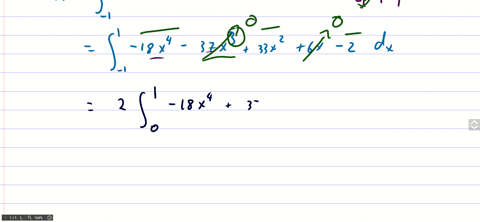 ∫_{-1}
= ∫_{-1}^{1} -18x⁴ - 37x³ + 33x² + 6x - 2 dx
0 0
= 2 ∫_{0}^{1} -18x⁴ + 3